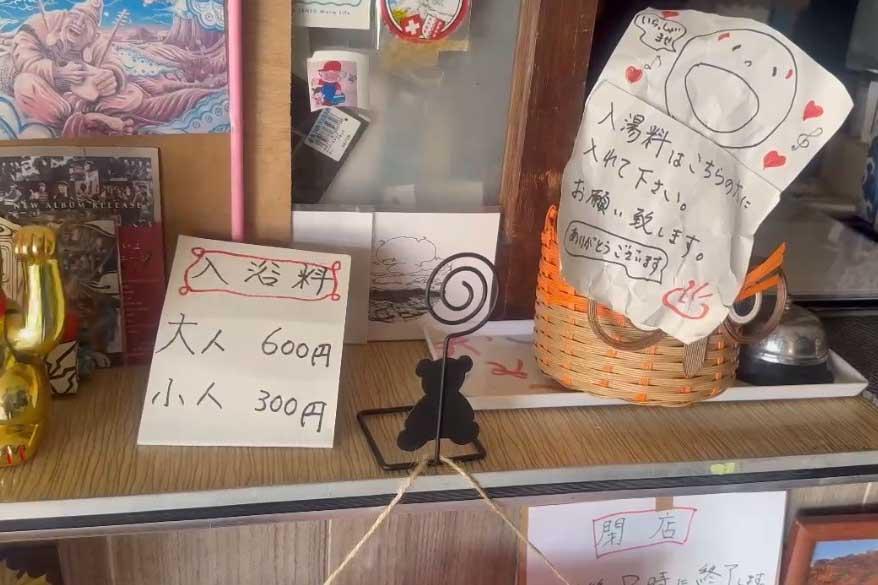 NEW ALBUM RELEASE
入浴料
大人 600円
小人 300円
いらっしゃい
ませ
入湯料はこちらの方に
入れて下さい。
お願い致します。
ありがとうございます
閉店